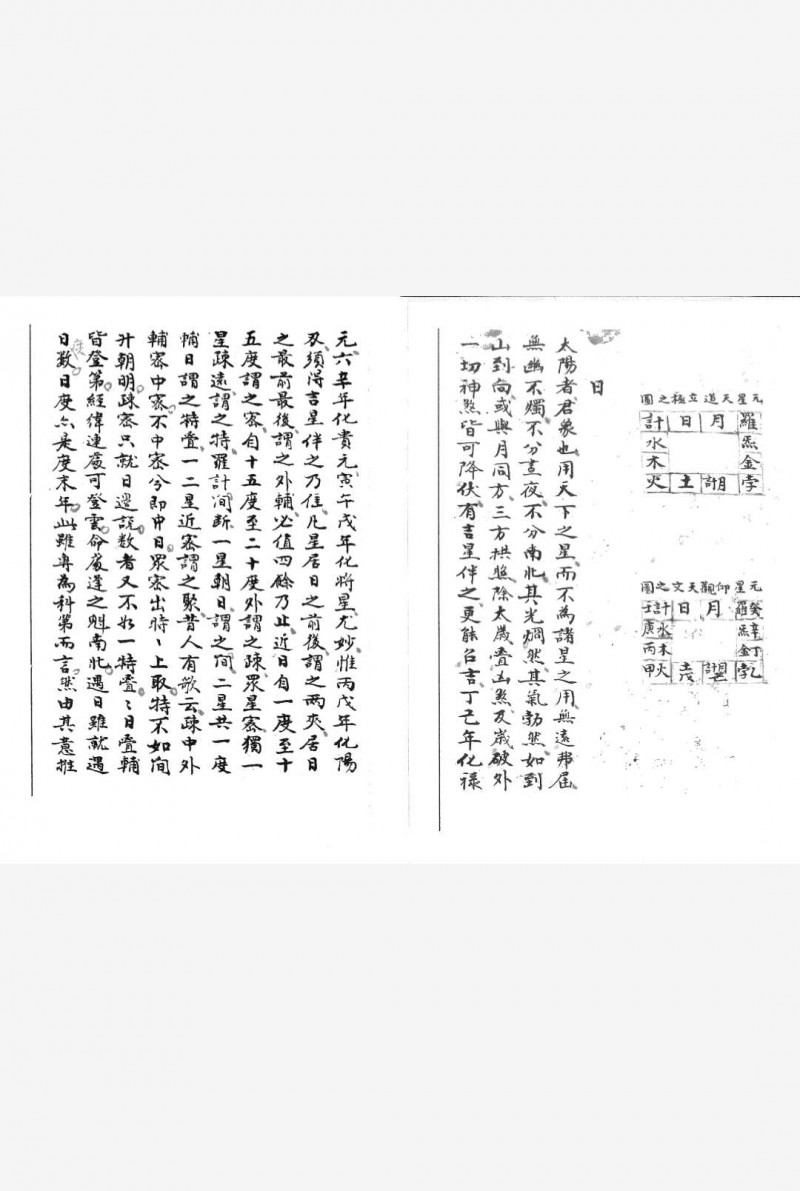 元星天道立極之圖
羅 月 日 計
炁 水
金 木
孛 胡 土 火
元星仰觀天文之圖
癸羅 月 日 計壬
辛炁 水庚
丁金 木丙
乙孛 土 火甲
日
太陽者君象也用天下之星而不為諸星之用無遠弗屆
無幽不燭不分晝夜不分南北其光烱然其氣勃然如到
山到向或與月同方三方拱照除太歲疊凶煞及歲破外
一切神煞皆可降伏有吉星伴之更能召吉丁己年化祿
元六辛年化貴元寅午戌年化將星尤妙惟丙戊年化陽
刃須得吉星伴之乃佳凡星居日之前後謂之两夾居日
之最前最後謂之外輔必值四餘乃止近日自一度至十
五度謂之密自十五度至二十度外謂之疎眾星密獨一
星疎遠謂之特羅計澗斷一星朝日謂之间二星共一度
輔日謂之特疊一二星近密謂之聚昔人有歌云疎中外
輔密中密不中密今即中日眾密出時丶上取特不如间
升朝明疎密只就日邊説数者又不如一特疊丶日疊輔
皆登第經緯連處可登雲命度逢之魁南北遇日雖就遇
度
日数日度六是度末年此雖專為科第而言然由其意推